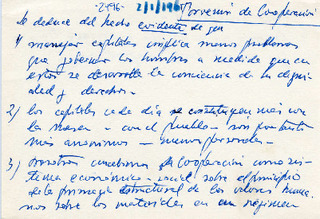 -2496- 2/1/1965 Porvenir de Cooperación
Se deduce del hecho evidente de que
1) manejar capitales implica menos problemas
que gobernar los hombres a medida que en
estos se desarrolla la conciencia de su digni-
dad y derechos.
2) los capitales cada día se constituyen mas con
la masa - con el pueblo - son por tanto
más anonimos - menos personales.
3) nosotros construimos la Cooperación como sis-
tema económico-social sobre el principio
de la primacía estructural de los valores huma-
nos sobre los materiales en un régimen